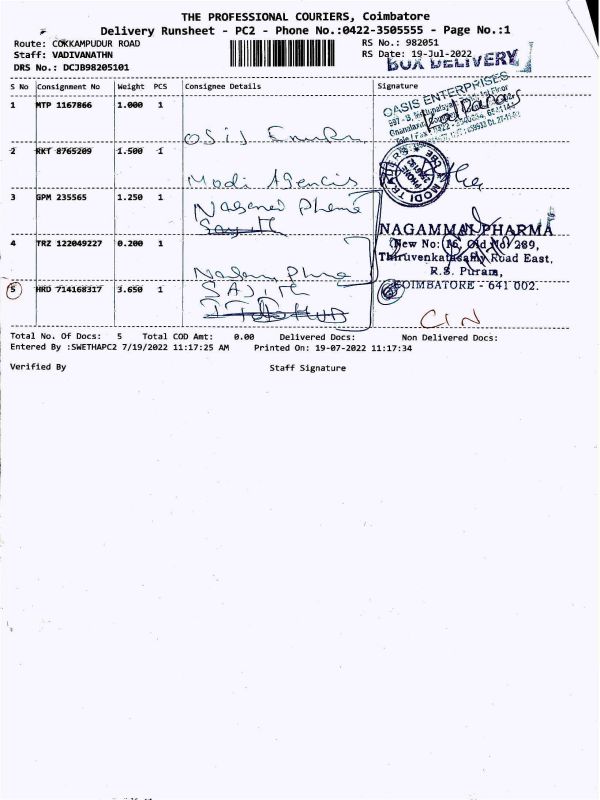 THE PROFESSIONAL COURIERS, Coimbatore
Delivery Runsheet - PC2 - Phone No.:0422-3505555 - Page No.:1
Route: COKKAMPUDUR ROAD
RS No.: 982051
Staff: VADIVANATHN
RS Date: 19-Jul-2022
BOX DELIVERY
DRS No.: DCJB98205101
S No Consignment No Weight PCS Consignee Details Signature
1 MTP 1167866 1.000 1
OASIS ENTERPRISES
2 RKT 8765209 1.500 1
Modi Agencis
MODI TRADERS
PHONE
3 GPM 235565 1.250 1
NAGAMMAI PHARMA
New No: 16, Old No: 289,
4 TRZ 122049227 0.200 1
Thiruvenkatasamy Road East,
R.S. Puram,
5 HRD 714168317 3.650 1 SAJITH
COIMBATORE - 641 002.
Total No. Of Docs: 5 Total COD Amt: 0.00 Delivered Docs: Non Delivered Docs:
Entered By :SWETHAPC2 7/19/2022 11:17:25 AM Printed On: 19-07-2022 11:17:34
Verified By Staff Signature